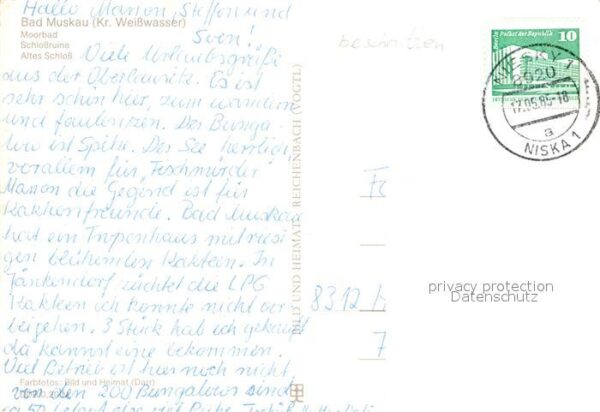 Hallo Manon, Steffen und
Sven!
Bad Muskau (Kr. Weißwasser)
Moorbad
Schloßruine
Altes Schloß
Viele Urlaubsgrüße
aus der Oberlausitz. Es ist
sehr schön hier, zum wandern
und faulenzen. Der Bunga-
low ist Spitze. Der See herrlich,
vorallem für "Fischmörder"
Manon die Gegend ist für
Kakteenfreunde. Bad Muskau
hat ein Tropenhaus mit riesi
gen blühenden Kakteen. In
Jänkendorf züchtet die LPG
Kakteen ich konnte nicht vor
beigehen. 3 Stück hab ich gekauft
da kannst eine bekommen.
Viel Betrieb ist hier noch nicht
Farbfotos: Bild und Heimat (Darr)
von den 200 Bungalows sind
ca 50 belegt also viel Ruhe.
BILD UND HEIMAT REICHENBACH (VOGTL)
beschnitten
Berlin Palast der Republik
10
NIESKY 1
8920
17.05.85-18
a
NISKA 1
8312
privacy protection
Datenschutz